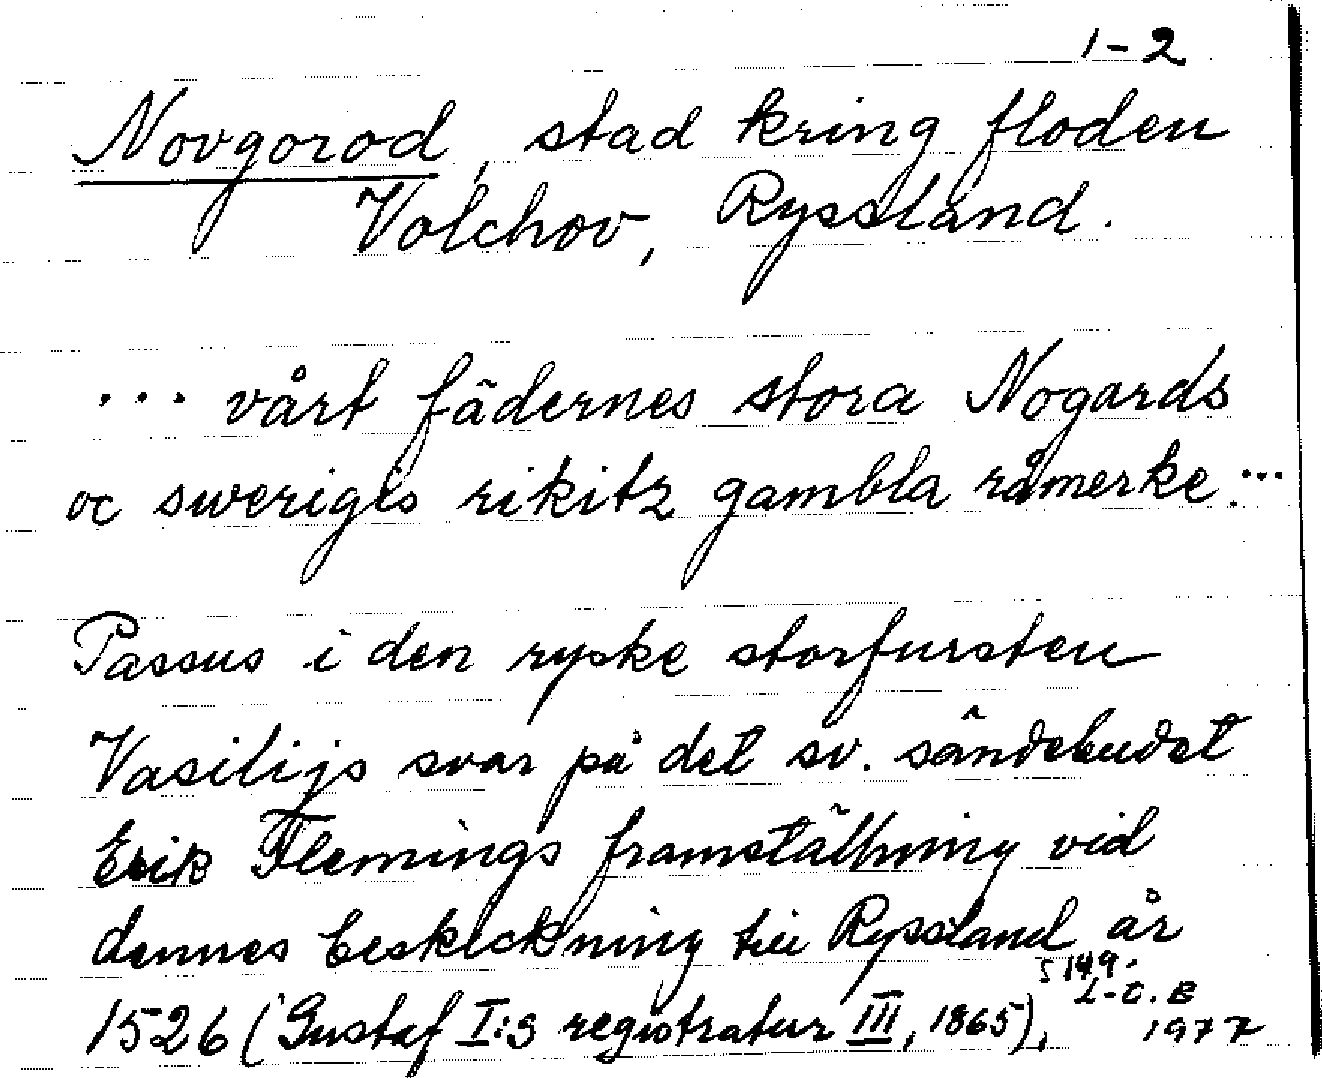 1-2
Novgorod, stad kring floden
Volchov, Ryssland.
... vårt fädernes stora Nogards
oc sweriges rikitz gambla råmerke ...
Passus i den ryske storfursten
Vasilijs svar på det sv. sändebudet
Erik Flemings framställning vid
dennes beskickning till Ryssland år
1526 (Gustaf I:s registratur III, 1865),
s 149.
L-O. B
1977